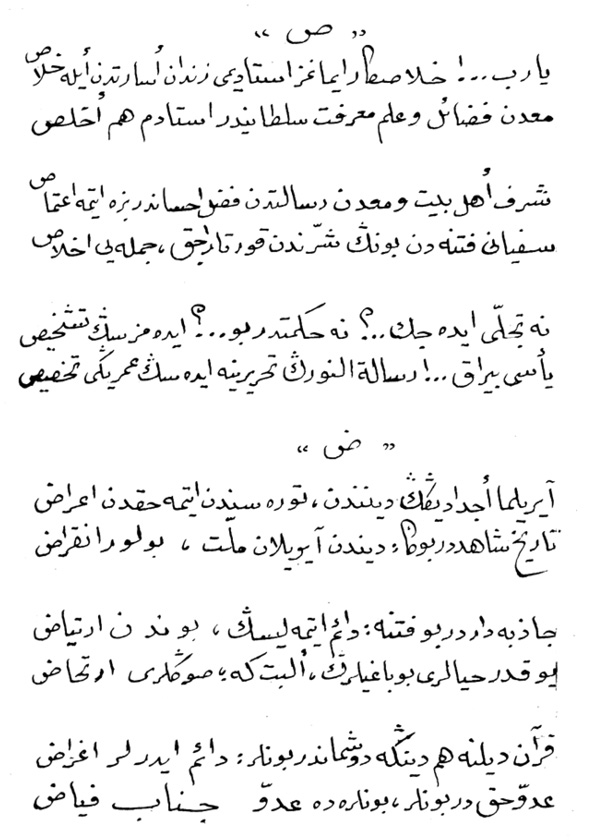 « ص »
يارب...! خلاصكار ايمانمز استاديمى زندان أسارتدن أيله خلاص
معدن فضائل وعلم معرفت سلطانيدر استادم هم أخلص
شرف أهل بيت ومعدن رسالتدن فضل احساندر بزه ايتمه اعتماص
سفيانى فتنه دن بونڭ شرّندن قورتاراجق، جمله يى اخلاص
نه تجلّى ايده جك..؟ نه حكمتدر بو...؟ ايده مزسڭ تشخيص
يأسى بيراق...! رسالة النورڭ تحريرينه ايده سڭ عمريڭى تخصيص
« ض »
آيريلما أجداديڭڭ دينندن، توره سيندن ايتمه حقدن اعراض
تاريخ شاهددر بوڭا: ديندن آيريلان ملّت، بولور انقراض
جاذبه داردر بو فتنه: دائم ايتمه ليسڭ، بوندن ارتياض
بو قدر حيالرى بو باغيلرڭ، ألبت كه؛ صوڭلرى ارتحاض
قرآن ديلنه هم دينڭه دوشماندر بونلر: دائم ايدرلر اغراض
عدوّ حق در بونلر، بونلره ده عدوّ جناب فياض